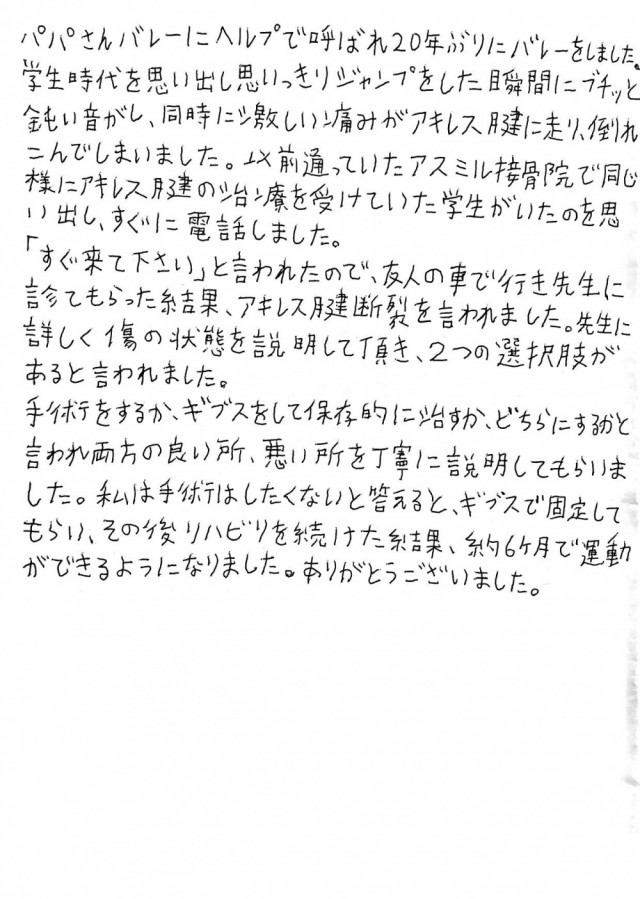 パパさんバレーにヘルプで呼ばれ20年ぶりにバレーをしました。
学生時代を思い出し思いっきりジャンプをした瞬間にブチッと
鈍い音がし、同時に激しい痛みがアキレス腱に走り、倒れ
こんでしまいました。以前通っていたアスミル接骨院で同じ
様にアキレス腱の治療を受けていた学生がいたのを思
い出し、すぐに電話しました。
「すぐ来て下さい」と言われたので、友人の車で行き先生に
診てもらった結果、アキレス腱断裂を言われました。先生に
詳しく傷の状態を説明して頂き、2つの選択肢が
あると言われました。
手術をするか、ギブスをして保存的に治すか、どちらにするかと
言われ両方の良い所、悪い所を丁寧に説明してもらいま
した。私は手術はしたくないと答えると、ギブスで固定して
もらい、その後リハビリを続けた結果、約6ケ月で運動
ができるようになりました。ありがとうございました。